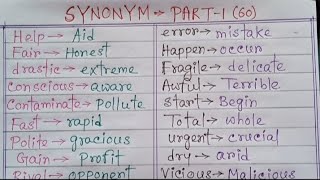 SYNONYM → PART-1 (60)
Help → Aid
Fair → Honest
drastic → extreme
Conscious → aware
Contaminate → Pollute
Fast → rapid
Polite → gracious
Gain → Profit
Rival → opponent
error → mistake
Happen → occur
Fragile → delicate
Awful → Terrible
start → Begin
Total → whole
urgent → crucial
dry → arid
Vicious → Malicious